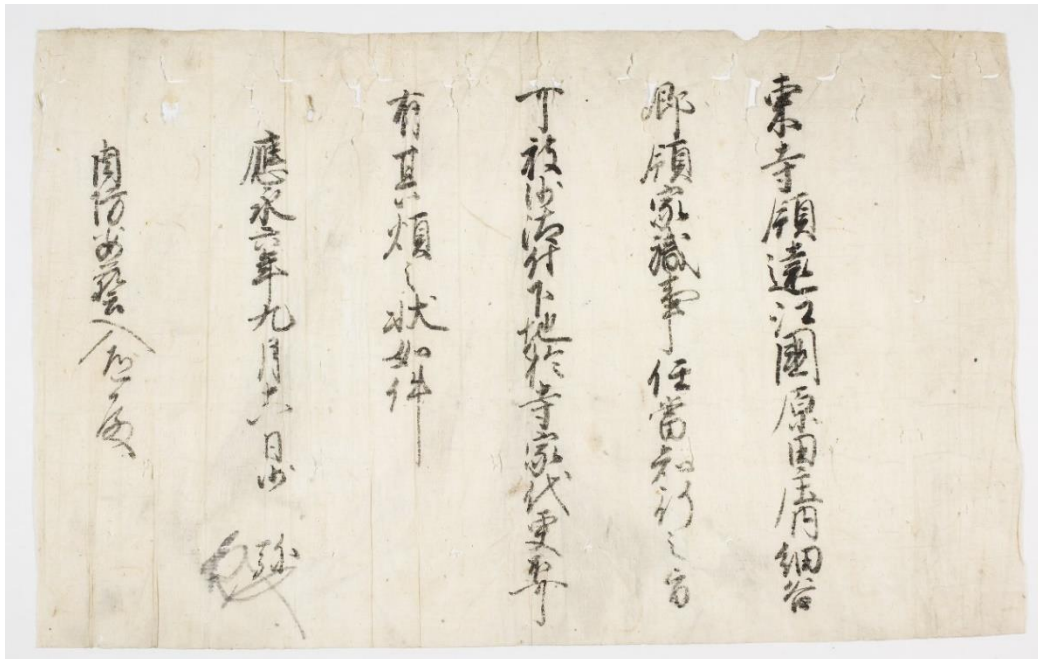 東寺領遠江國原田庄内細谷
郷領家職事任當知行之旨
可被沙汰付下地於寺家代更無
有其煩之状如件
應永六年九月十八日沙弥
周防安藝入道殿